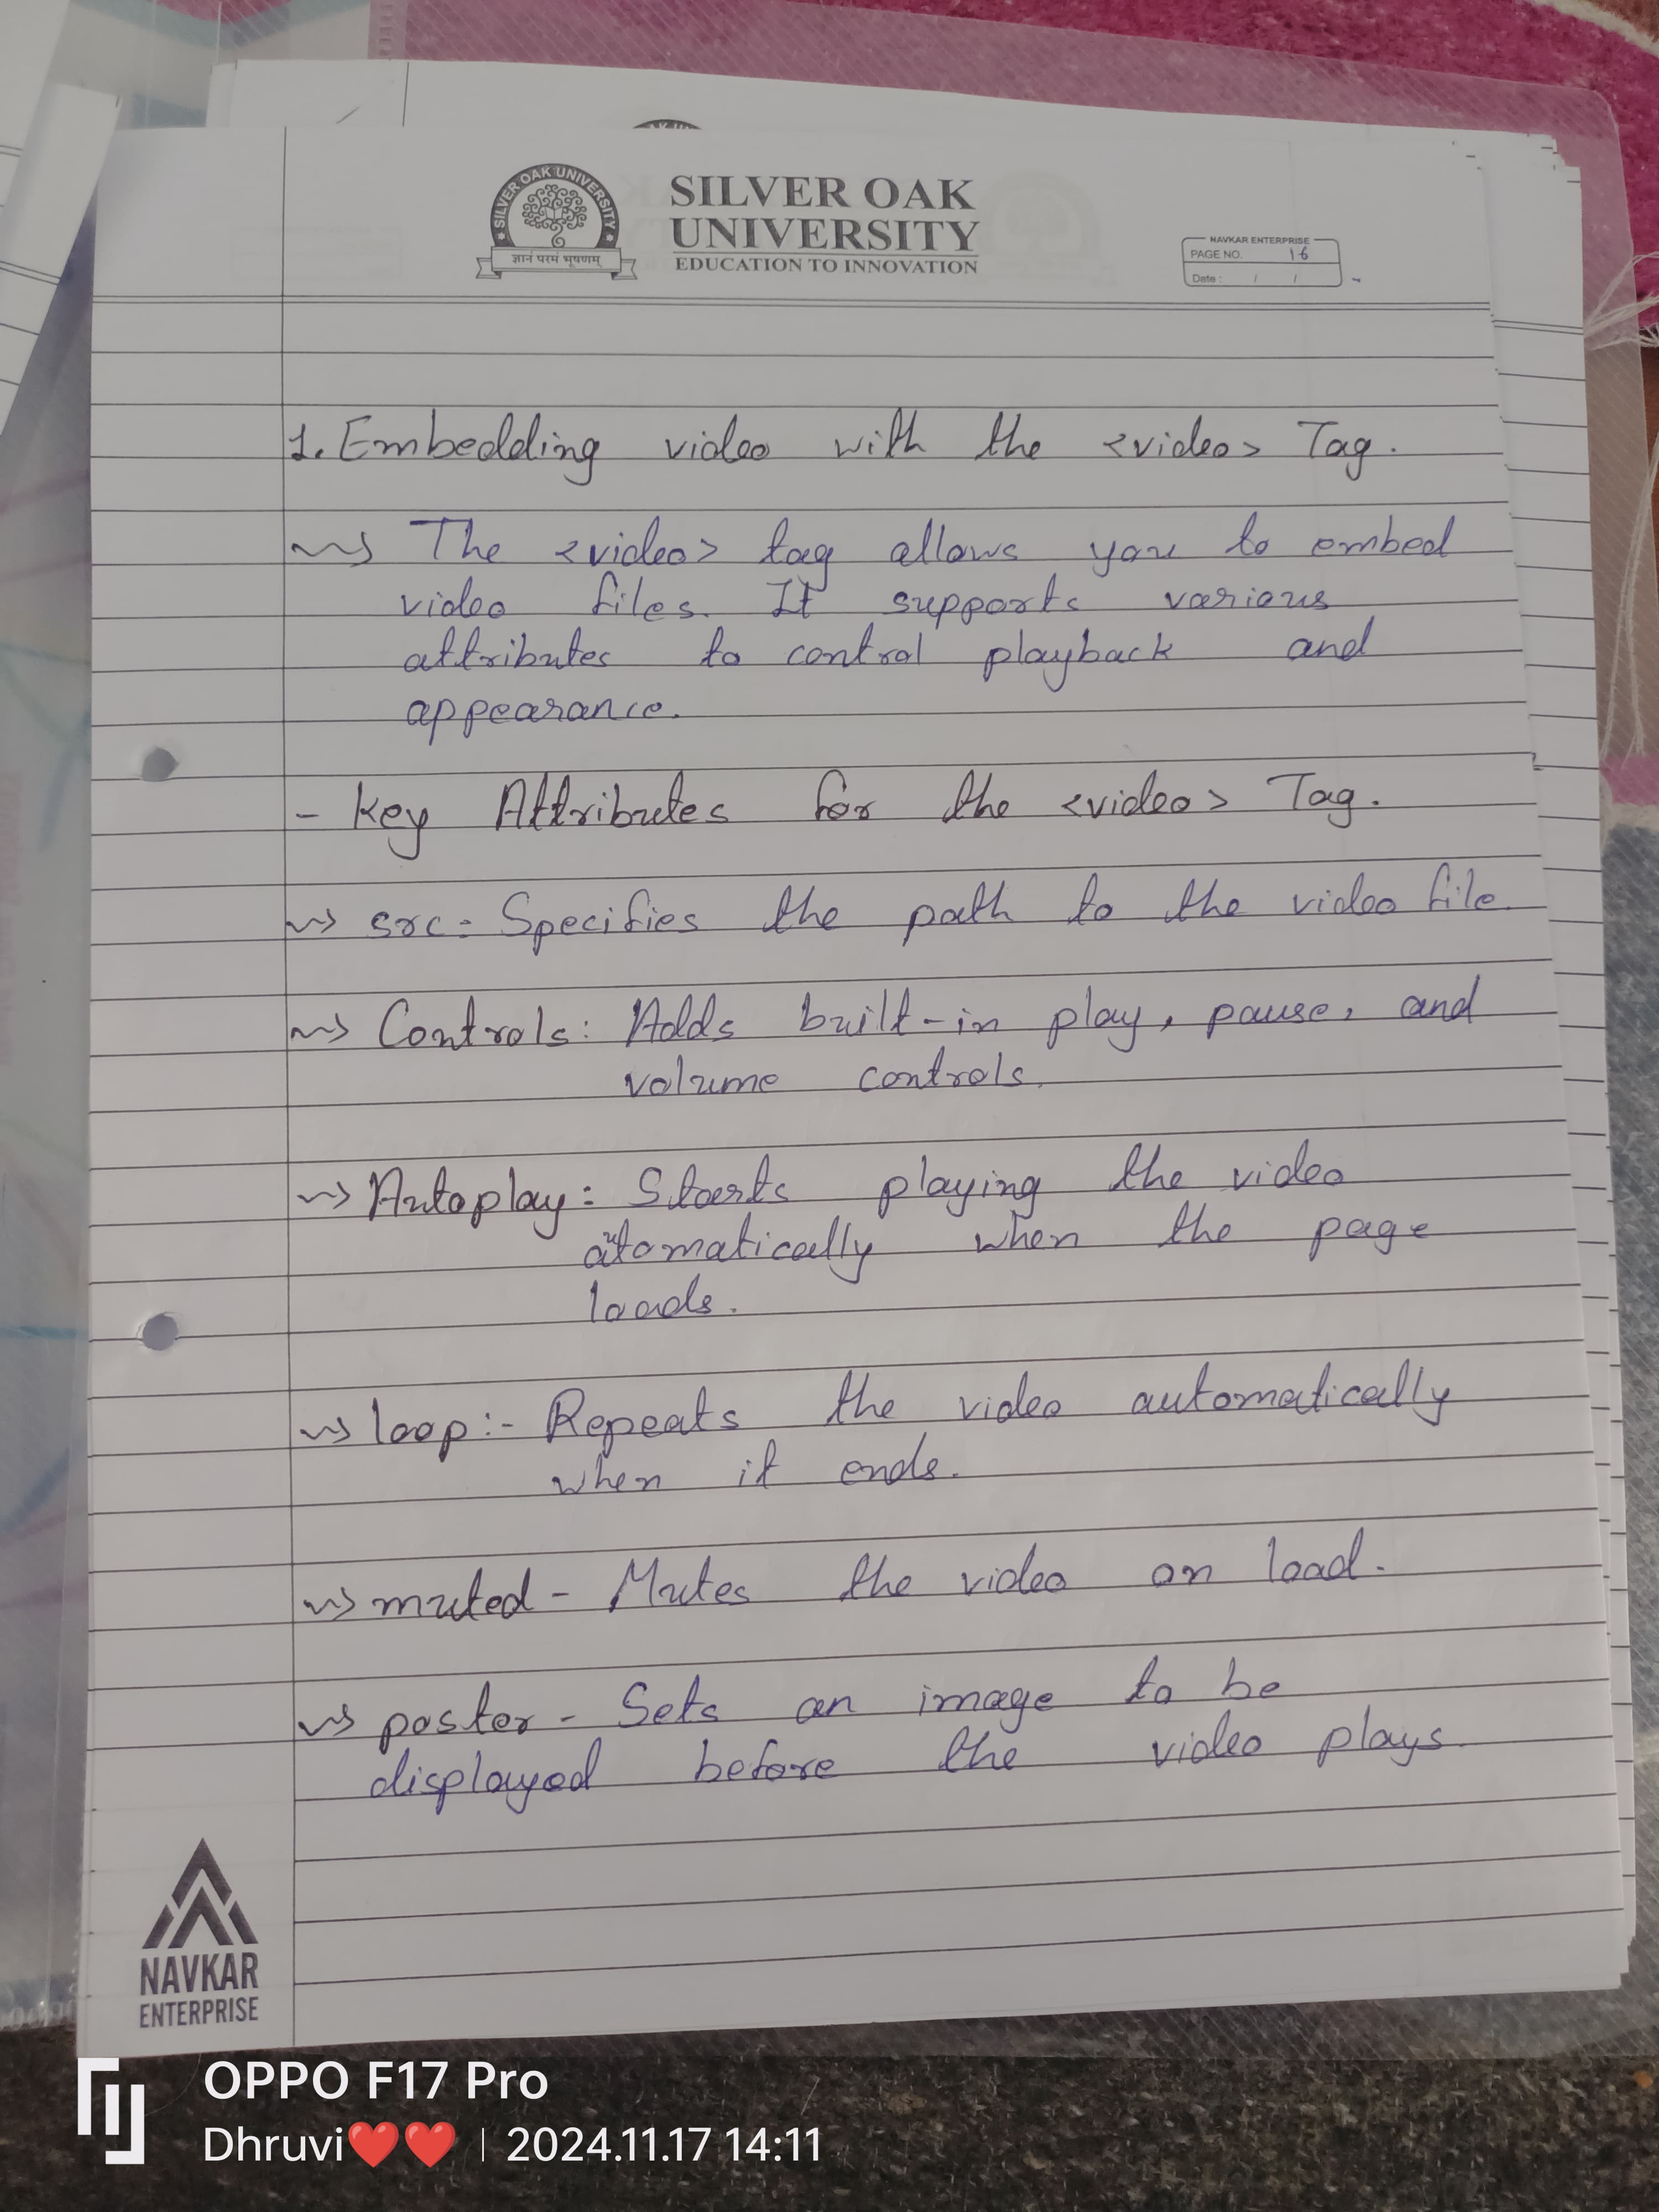 SILVER OAK UNIVERSITY
ज्ञानं परमं भूषणम्
SILVER OAK
UNIVERSITY
EDUCATION TO INNOVATION
NAVKAR ENTERPRISE
PAGE NO. 16
Date : / /
1. Embedding video with the <video> Tag.
The <video> tag allows you to embed
video files. It supports various
attributes to control playback and
appearance.
- Key Attributes for the <video> Tag.
src: Specifies the path to the video file.
Controls: Adds built-in play, pause, and
volume controls.
Autoplay: Starts playing the video
automatically when the page
loads.
loop:- Repeats the video automatically
when it ends.
muted - Mutes the video on load.
poster - Sets an image to be
displayed before the video plays.
NAVKAR
ENTERPRISE
OPPO F17 Pro
Dhruvi❤️❤️ | 2024.11.17 14:11